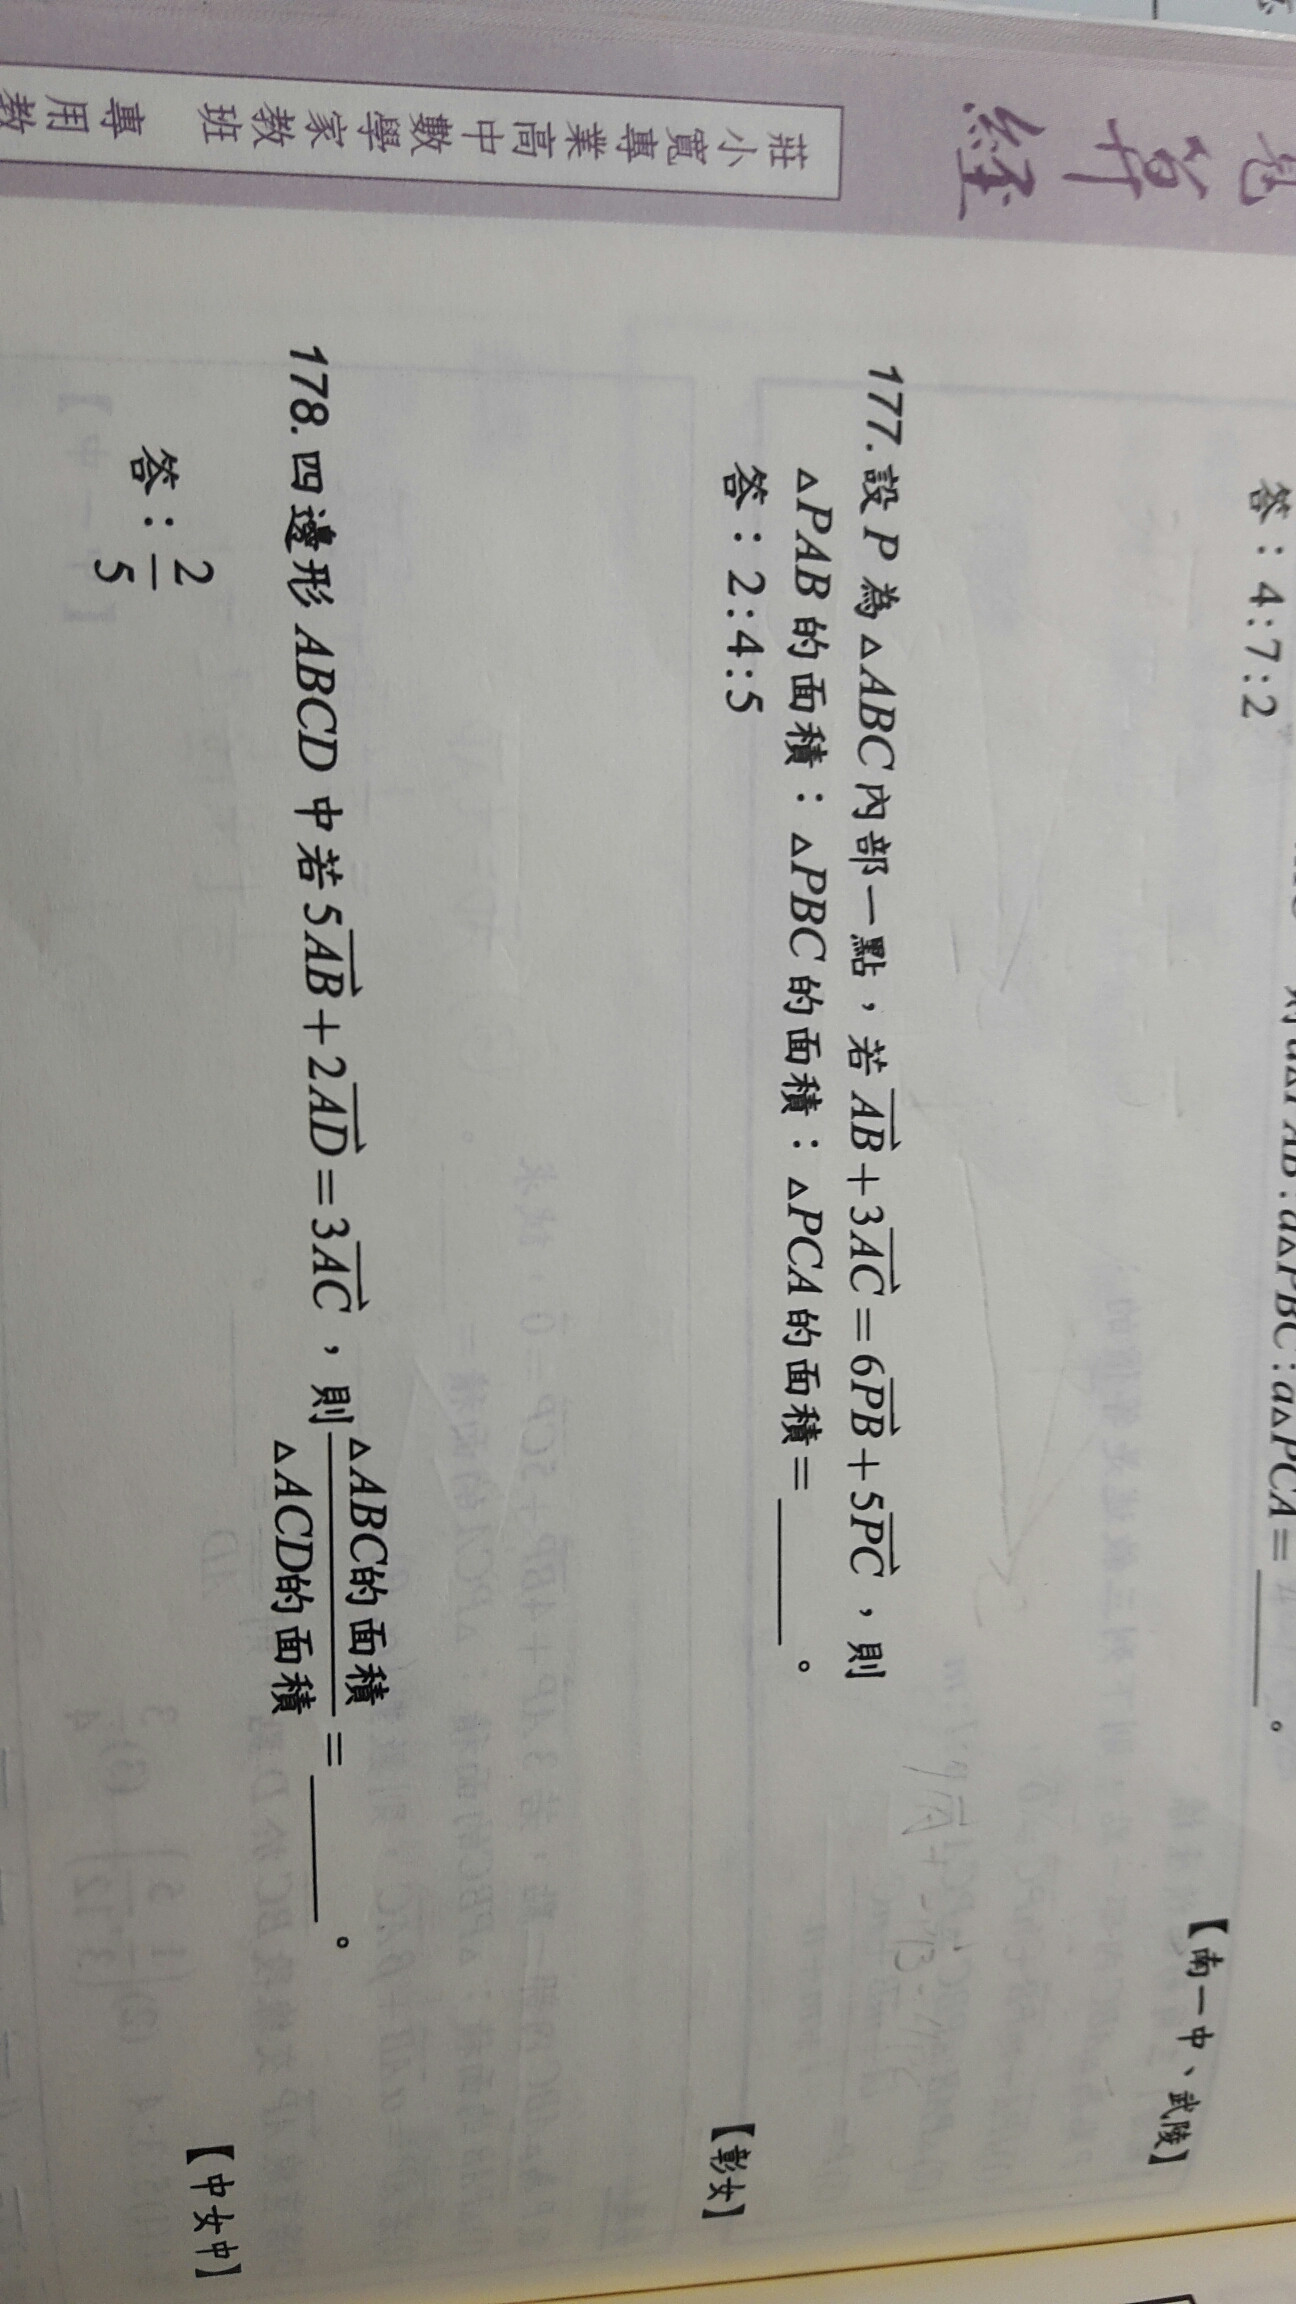 算經
莊小寬專業高中數學家教班 專用教
答：4:7:2
【南一中、武陵】
177.設 P 為△ABC內部一點，若 $\overrightarrow{AB}+3\overrightarrow{AC}=6\overrightarrow{PB}+5\overrightarrow{PC}$，則
△PAB 的面積：△PBC 的面積：△PCA 的面積＝______。
答：2:4:5
【彰女】
178.四邊形 ABCD 中若 $5\overrightarrow{AB}+2\overrightarrow{AD}=3\overrightarrow{AC}$，則 $\frac{△ABC的面積}{△ACD的面積}$＝______。
答：$\frac{2}{5}$
【中女中】